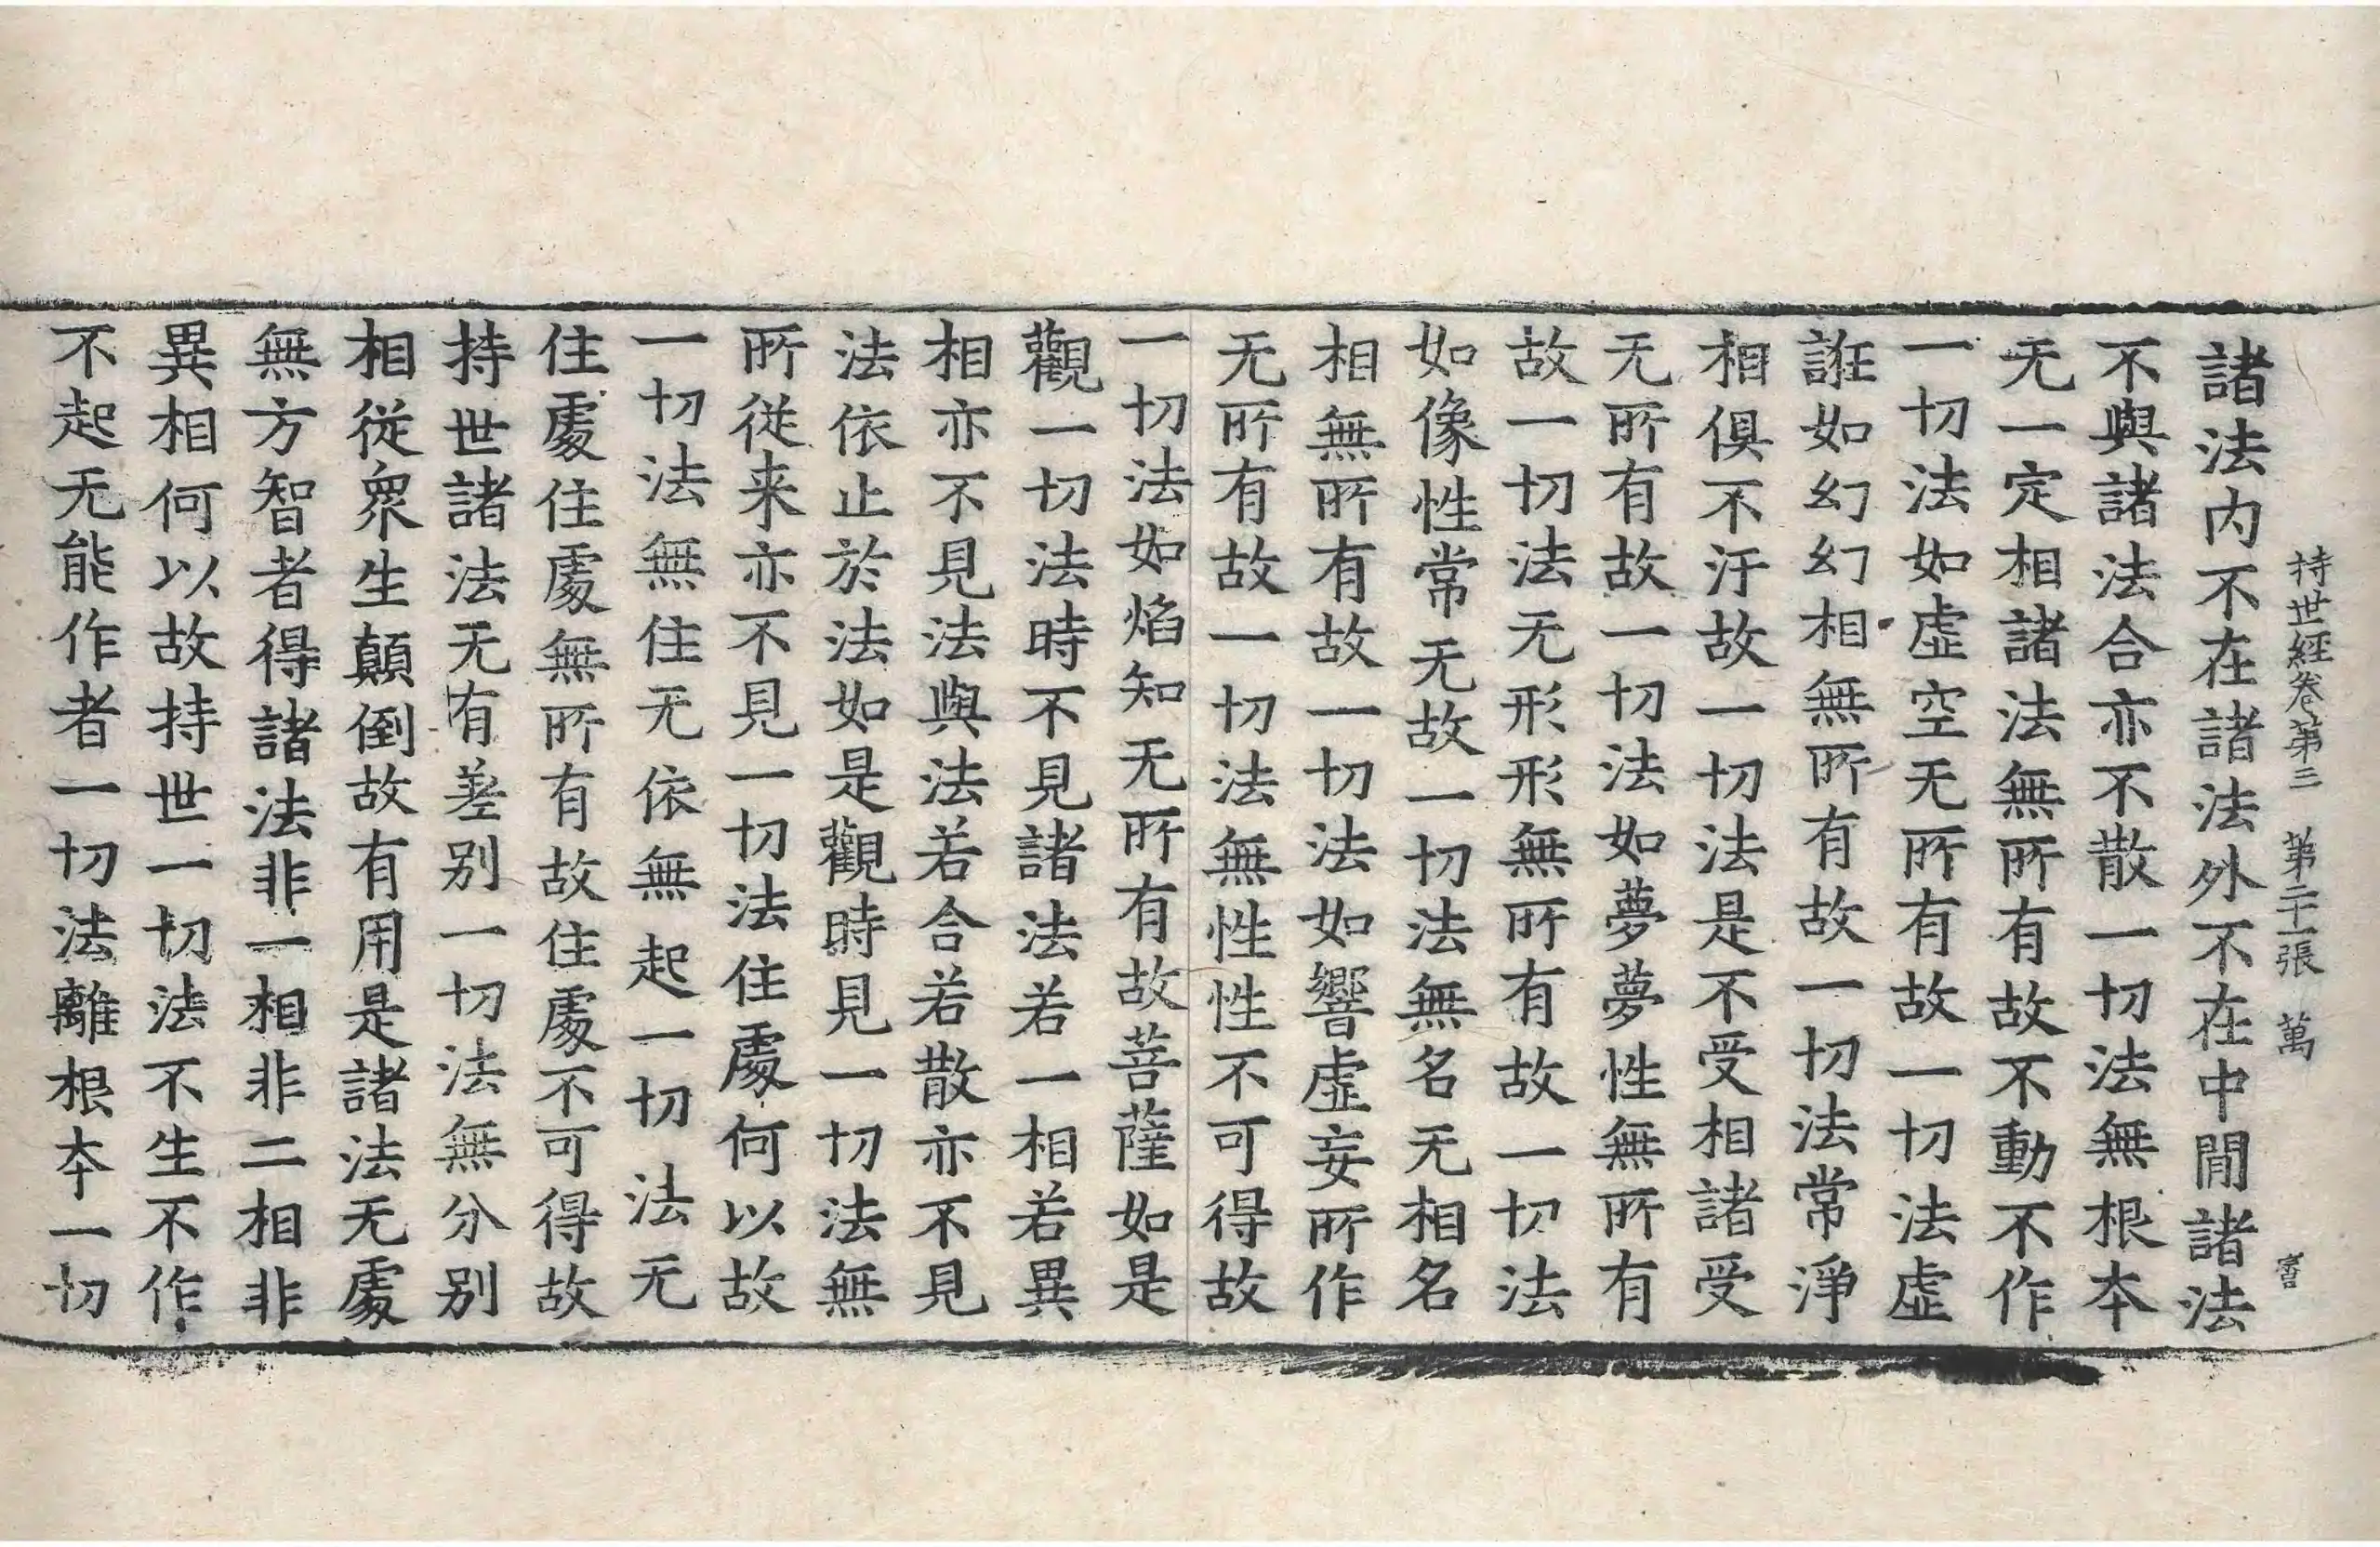 持世經卷第三 第二十一張 萬
諸法内不在諸法外不在中閒諸法
不與諸法合亦不散一切法無根夲
无一定相諸法無所有故不動不作
一切法如虛空无所有故一切法虛
誑如幻幻相無所有故一切法常淨
相俱不汙故一切法是不受相諸受
无所有故一切法如夢夢性無所有
故一切法无形形無所有故一切法
如像性常无故一切法無名无相名
相無所有故一切法如響虛妄所作
无所有故一切法無性性不可得故
一切法如焰知无所有故菩薩如是
觀一切法時不見諸法若一相若異
相亦不見法與法若合若散亦不見
法依止於法如是觀時見一切法無
所從来亦不見一切法住處何以故
一切法無住无依無起一切法无
住處住處無所有故住處不可得故
持世諸法无有差别一切法無分别
相從衆生顛倒故有用是諸法无處
無方智者得諸法非一相非二相非
異相何以故持世一切法不生不作
不起无能作者一切法離根夲一切